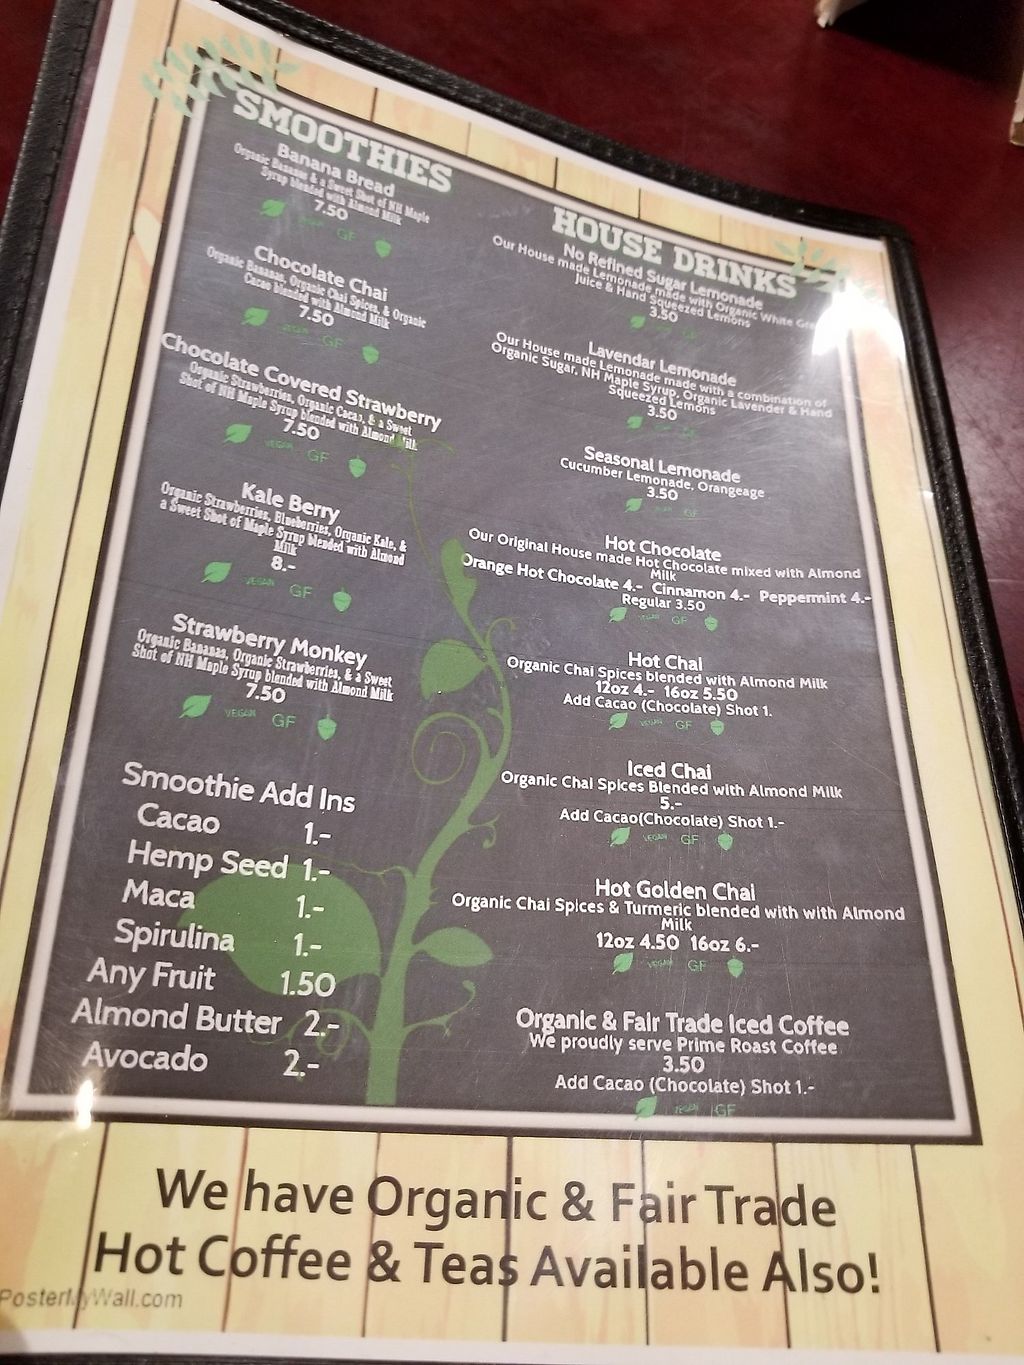 SMOOTHIES
Banana Bread
Organic Bananas & a Sweet Shot of NH Maple
Syrup blended with Almond Milk
7.50
VEGAN GF
Chocolate Chai
Organic Bananas, Organic Chai Spices, & Organic
Cacao blended with Almond Milk
7.50
VEGAN GF
Chocolate Covered Strawberry
Organic Strawberries, Organic Cacao, & a Sweet
Shot of NH Maple Syrup blended with Almond Milk
7.50
VEGAN GF
Kale Berry
Organic Strawberries, Blueberries, Organic Kale, &
a Sweet Shot of Maple Syrup blended with Almond
Milk
8.-
VEGAN GF
Strawberry Monkey
Organic Bananas, Organic Strawberries, & a Sweet
Shot of NH Maple Syrup blended with Almond Milk
7.50
VEGAN GF
Smoothie Add Ins
Cacao 1.-
Hemp Seed 1.-
Maca 1.-
Spirulina 1.-
Any Fruit 1.50
Almond Butter 2.-
Avocado 2.-
HOUSE DRINKS
No Refined Sugar Lemonade
Our House made Lemonade made with Organic White
Juice & Hand Squeezed Lemons
3.50
GF
Lavendar Lemonade
Our House made Lemonade made with a combination of
Organic Sugar, NH Maple Syrup, Organic Lavender & Hand
Squeezed Lemons
3.50
Seasonal Lemonade
Cucumber Lemonade, Orangeage
3.50
GF
Hot Chocolate
Our Original House made Hot Chocolate mixed with Almond
Milk
Orange Hot Chocolate 4.- Cinnamon 4.- Peppermint 4.-
Regular 3.50
VEGAN GF
Hot Chai
Organic Chai Spices blended with Almond Milk
12oz 4.- 16oz 5.50
Add Cacao (Chocolate) Shot 1.
VEGAN GF
Iced Chai
Organic Chai Spices Blended with Almond Milk
5.-
Add Cacao(Chocolate) Shot 1.-
VEGAN GF
Hot Golden Chai
Organic Chai Spices & Turmeric blended with with Almond
Milk
12oz 4.50 16oz 6.-
VEGAN GF
Organic & Fair Trade Iced Coffee
We proudly serve Prime Roast Coffee
3.50
Add Cacao (Chocolate) Shot 1.-
VEGAN GF
We have Organic & Fair Trade
Hot Coffee & Teas Available Also!
PosterMyWall.com